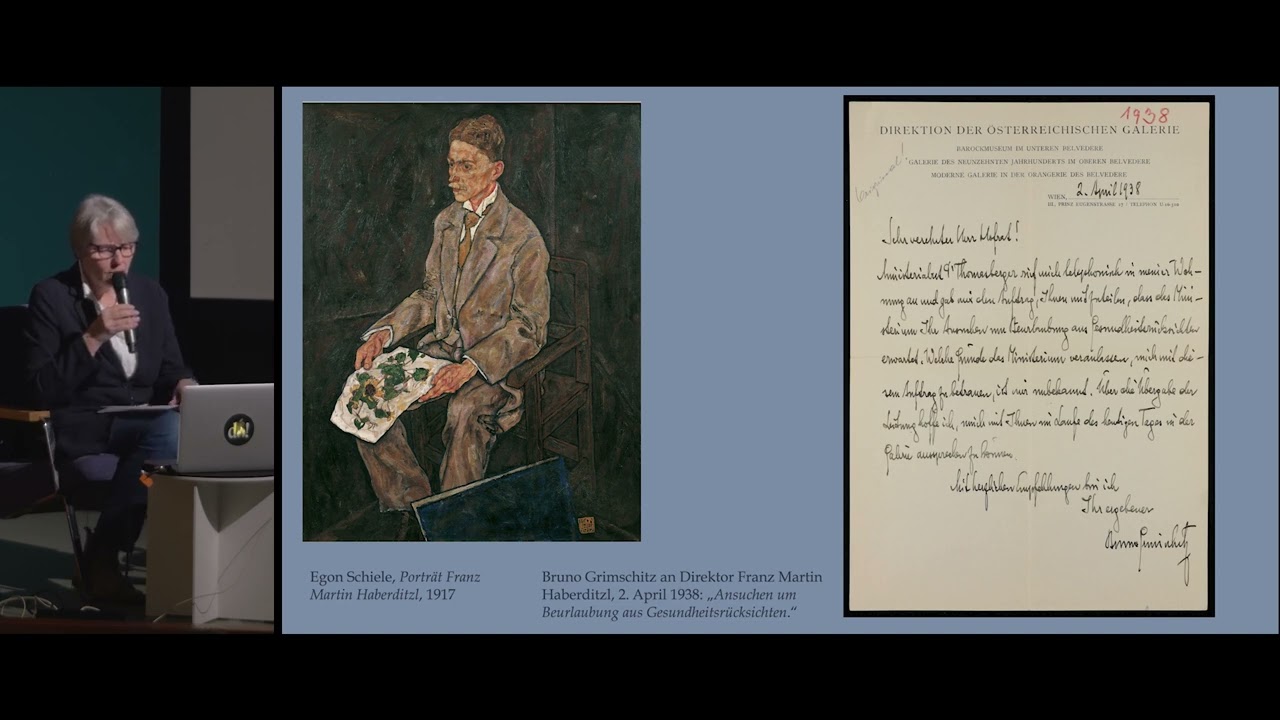 Egon Schiele, Porträt Franz
Martin Haberditzl, 1917
Bruno Grimschitz an Direktor Franz Martin
Haberditzl, 2. April 1938: „Ansuchen um
Beurlaubung aus Gesundheitsrücksichten.“
1938
DIREKTION DER ÖSTERREICHISCHEN GALERIE
BAROCKMUSEUM IM UNTEREN BELVEDERE
GALERIE DES NEUNZEHNTEN JAHRHUNDERTS IM OBEREN BELVEDERE
MODERNE GALERIE IN DER ORANGERIE DES BELVEDERE
WIEN, 2. April 1938
III. PRINZ EUGENSTRASSE 27 / TELEPHON
Sehr verehrter Herr Hofrat!
Ministerialrat Dr Thomasberger rief mich telephonisch in meiner Woh-
nung an und gab mir den Auftrag, Ihnen mitzuteilen, dass das Mini-
sterium Ihr Ansuchen um Beurlaubung aus Gesundheitsrücksichten
erwartet. Welche Gründe das Ministerium veranlassen, mich mit die-
sem Auftrag zu betrauen, ist mir unbekannt. Über die Übergabe der
Leitung hoffe ich, mich mit Ihnen im Laufe des heutigen Tages in der
Galerie aussprechen zu können.
Mit herzlichen Empfehlungen bin ich
Ihr ergebener
Bruno Grimschitz